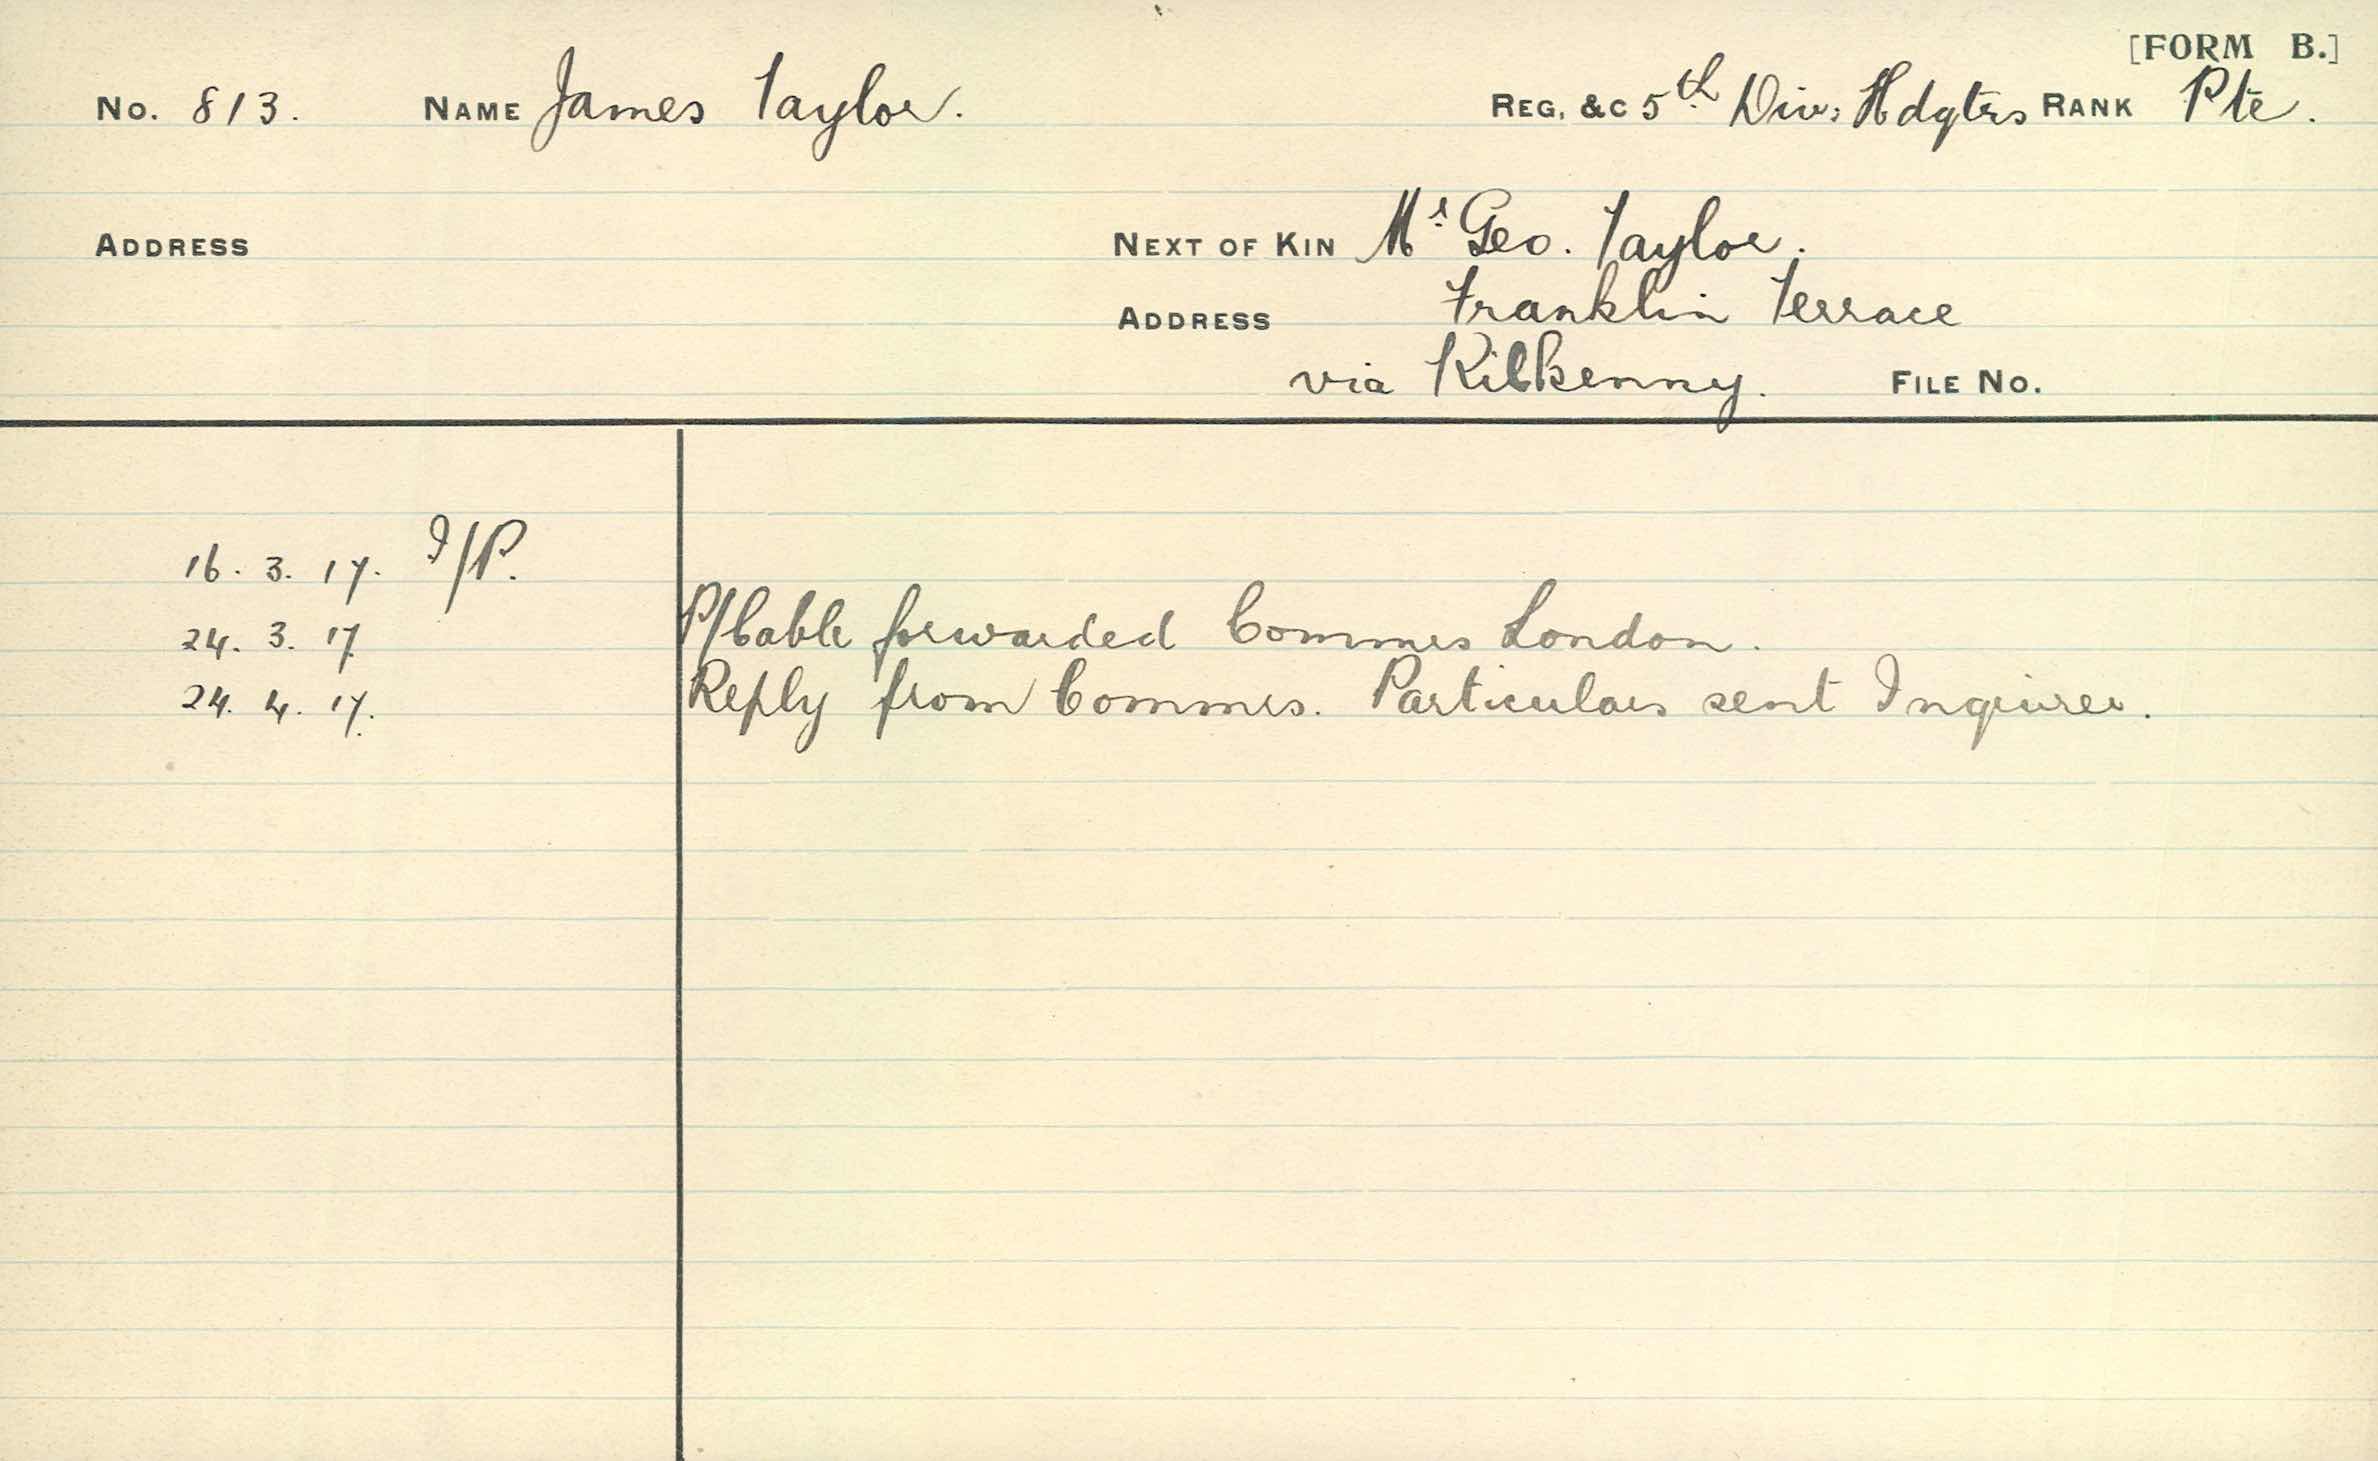 [FORM B.]
No. 813. NAME James Taylor. REG. &C 5th Div: Hdqtrs RANK Pte.
ADDRESS NEXT OF KIN Mrs Geo. Taylor.
ADDRESS Franklin Terrace
via Kilkenny. FILE No.
16. 3. 17. I/P.
24. 3. 17 P/Cable forwarded Commrs London.
24. 4. 17. Reply from Commrs. Particulars sent Inquirer.